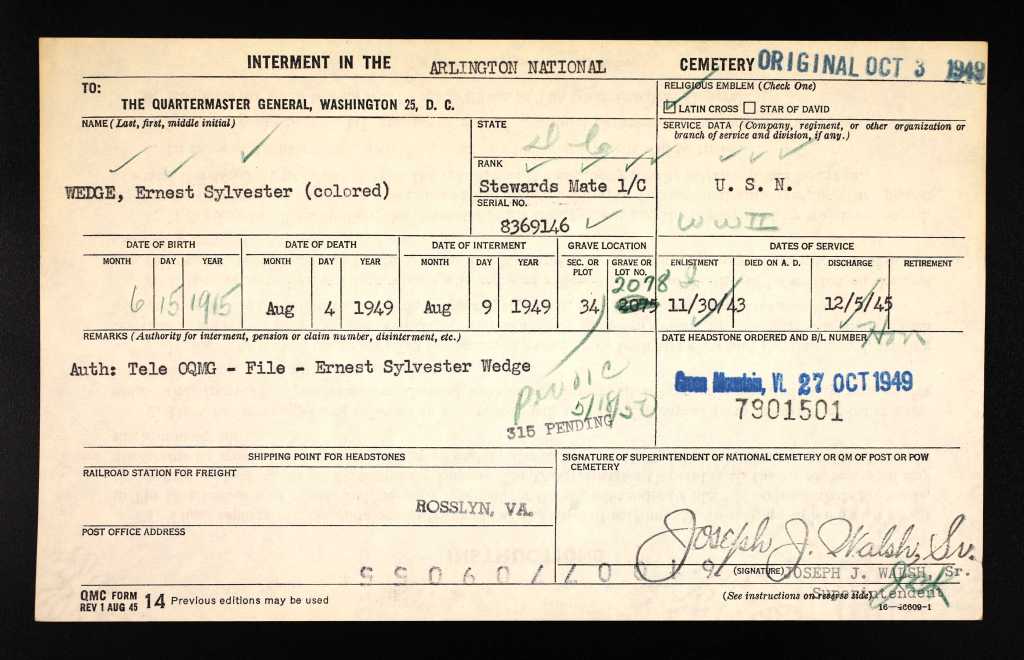 INTERMENT IN THE ARLINGTON NATIONAL CEMETERY ORIGINAL OCT 3 1949
TO:
THE QUARTERMASTER GENERAL, WASHINGTON 25, D. C.
RELIGIOUS EMBLEM (Check One)
LATIN CROSS STAR OF DAVID
NAME (Last, first, middle initial)
WEDGE, Ernest Sylvester (colored)
STATE
D. C.
RANK
Stewards Mate 1/C
SERIAL NO.
8369146
SERVICE DATA (Company, regiment, or other organization or branch of service and division, if any.)
U. S. N.
WW II
DATE OF BIRTH DATE OF DEATH DATE OF INTERMENT GRAVE LOCATION DATES OF SERVICE
MONTH DAY YEAR MONTH DAY YEAR MONTH DAY YEAR SEC. OR PLOT GRAVE OR LOT NO. ENLISTMENT DIED ON A. D. DISCHARGE RETIREMENT
2078
6 15 1915 Aug 4 1949 Aug 9 1949 34 2075 11/30/43 12/5/45
Hon
REMARKS (Authority for interment, pension or claim number, disinterment, etc.)
Auth: Tele OQMG - File - Ernest Sylvester Wedge
5/18/50
315 PENDING
DATE HEADSTONE ORDERED AND B/L NUMBER
Green Mountain, Vt. 27 OCT 1949
7801501
SHIPPING POINT FOR HEADSTONES
RAILROAD STATION FOR FREIGHT
ROSSLYN, VA.
POST OFFICE ADDRESS
SIGNATURE OF SUPERINTENDENT OF NATIONAL CEMETERY OR QM OF POST OR POW CEMETERY
Joseph J. Walsh, Sr.
(SIGNATURE) JOSEPH J. WALSH, Sr.
Superintendent
(See instructions on reverse side)
16—46609-1
QMC FORM
REV 1 AUG 45 14 Previous editions may be used